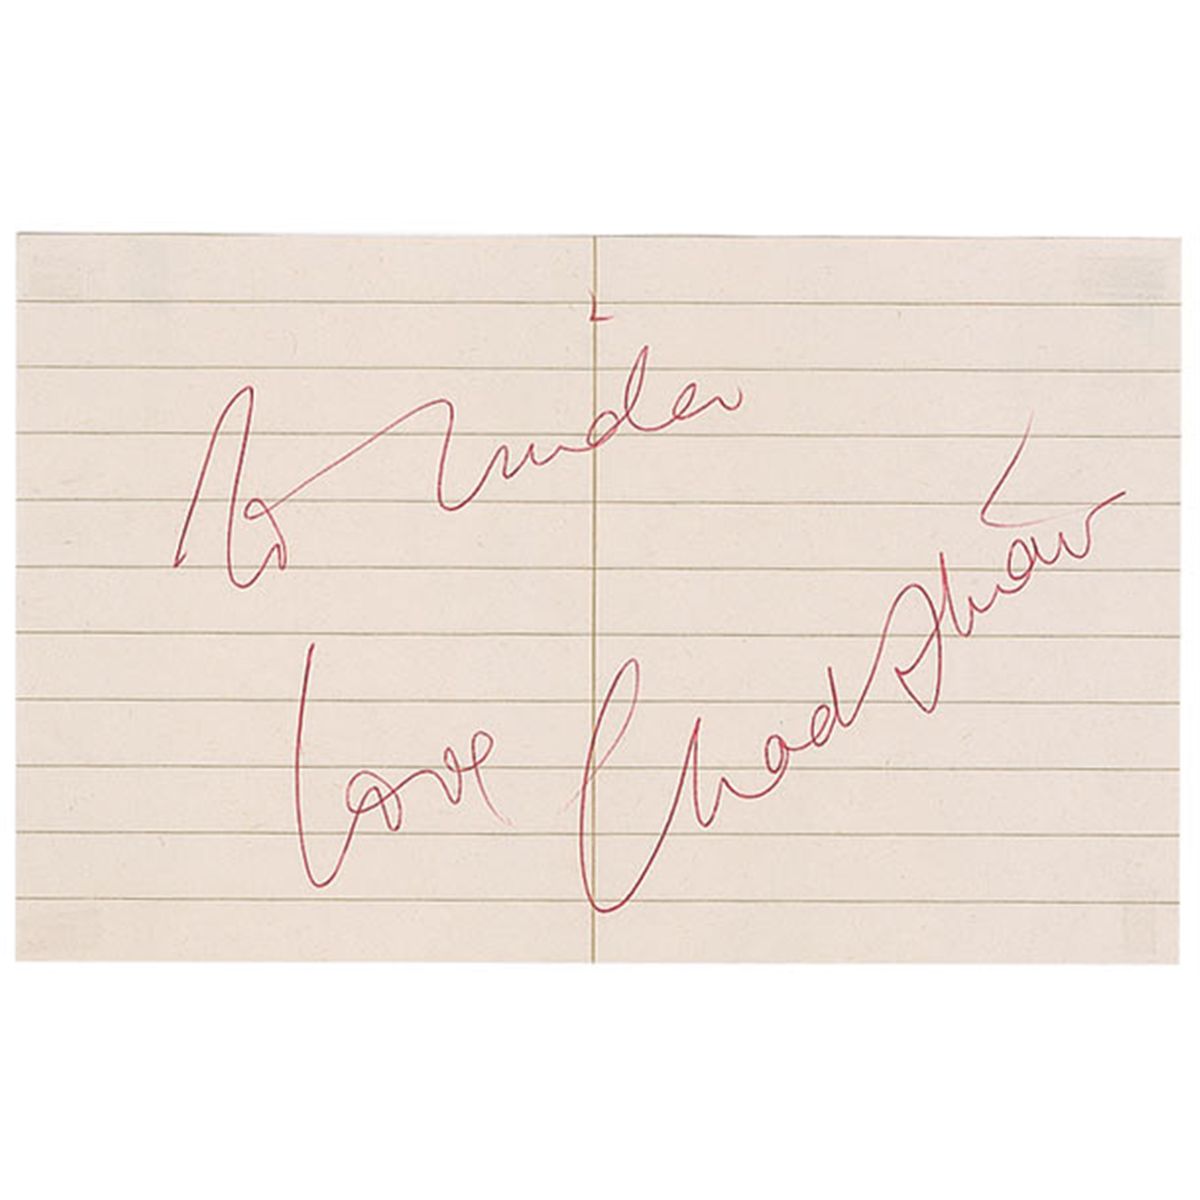 To Linda
love Chad Stuart